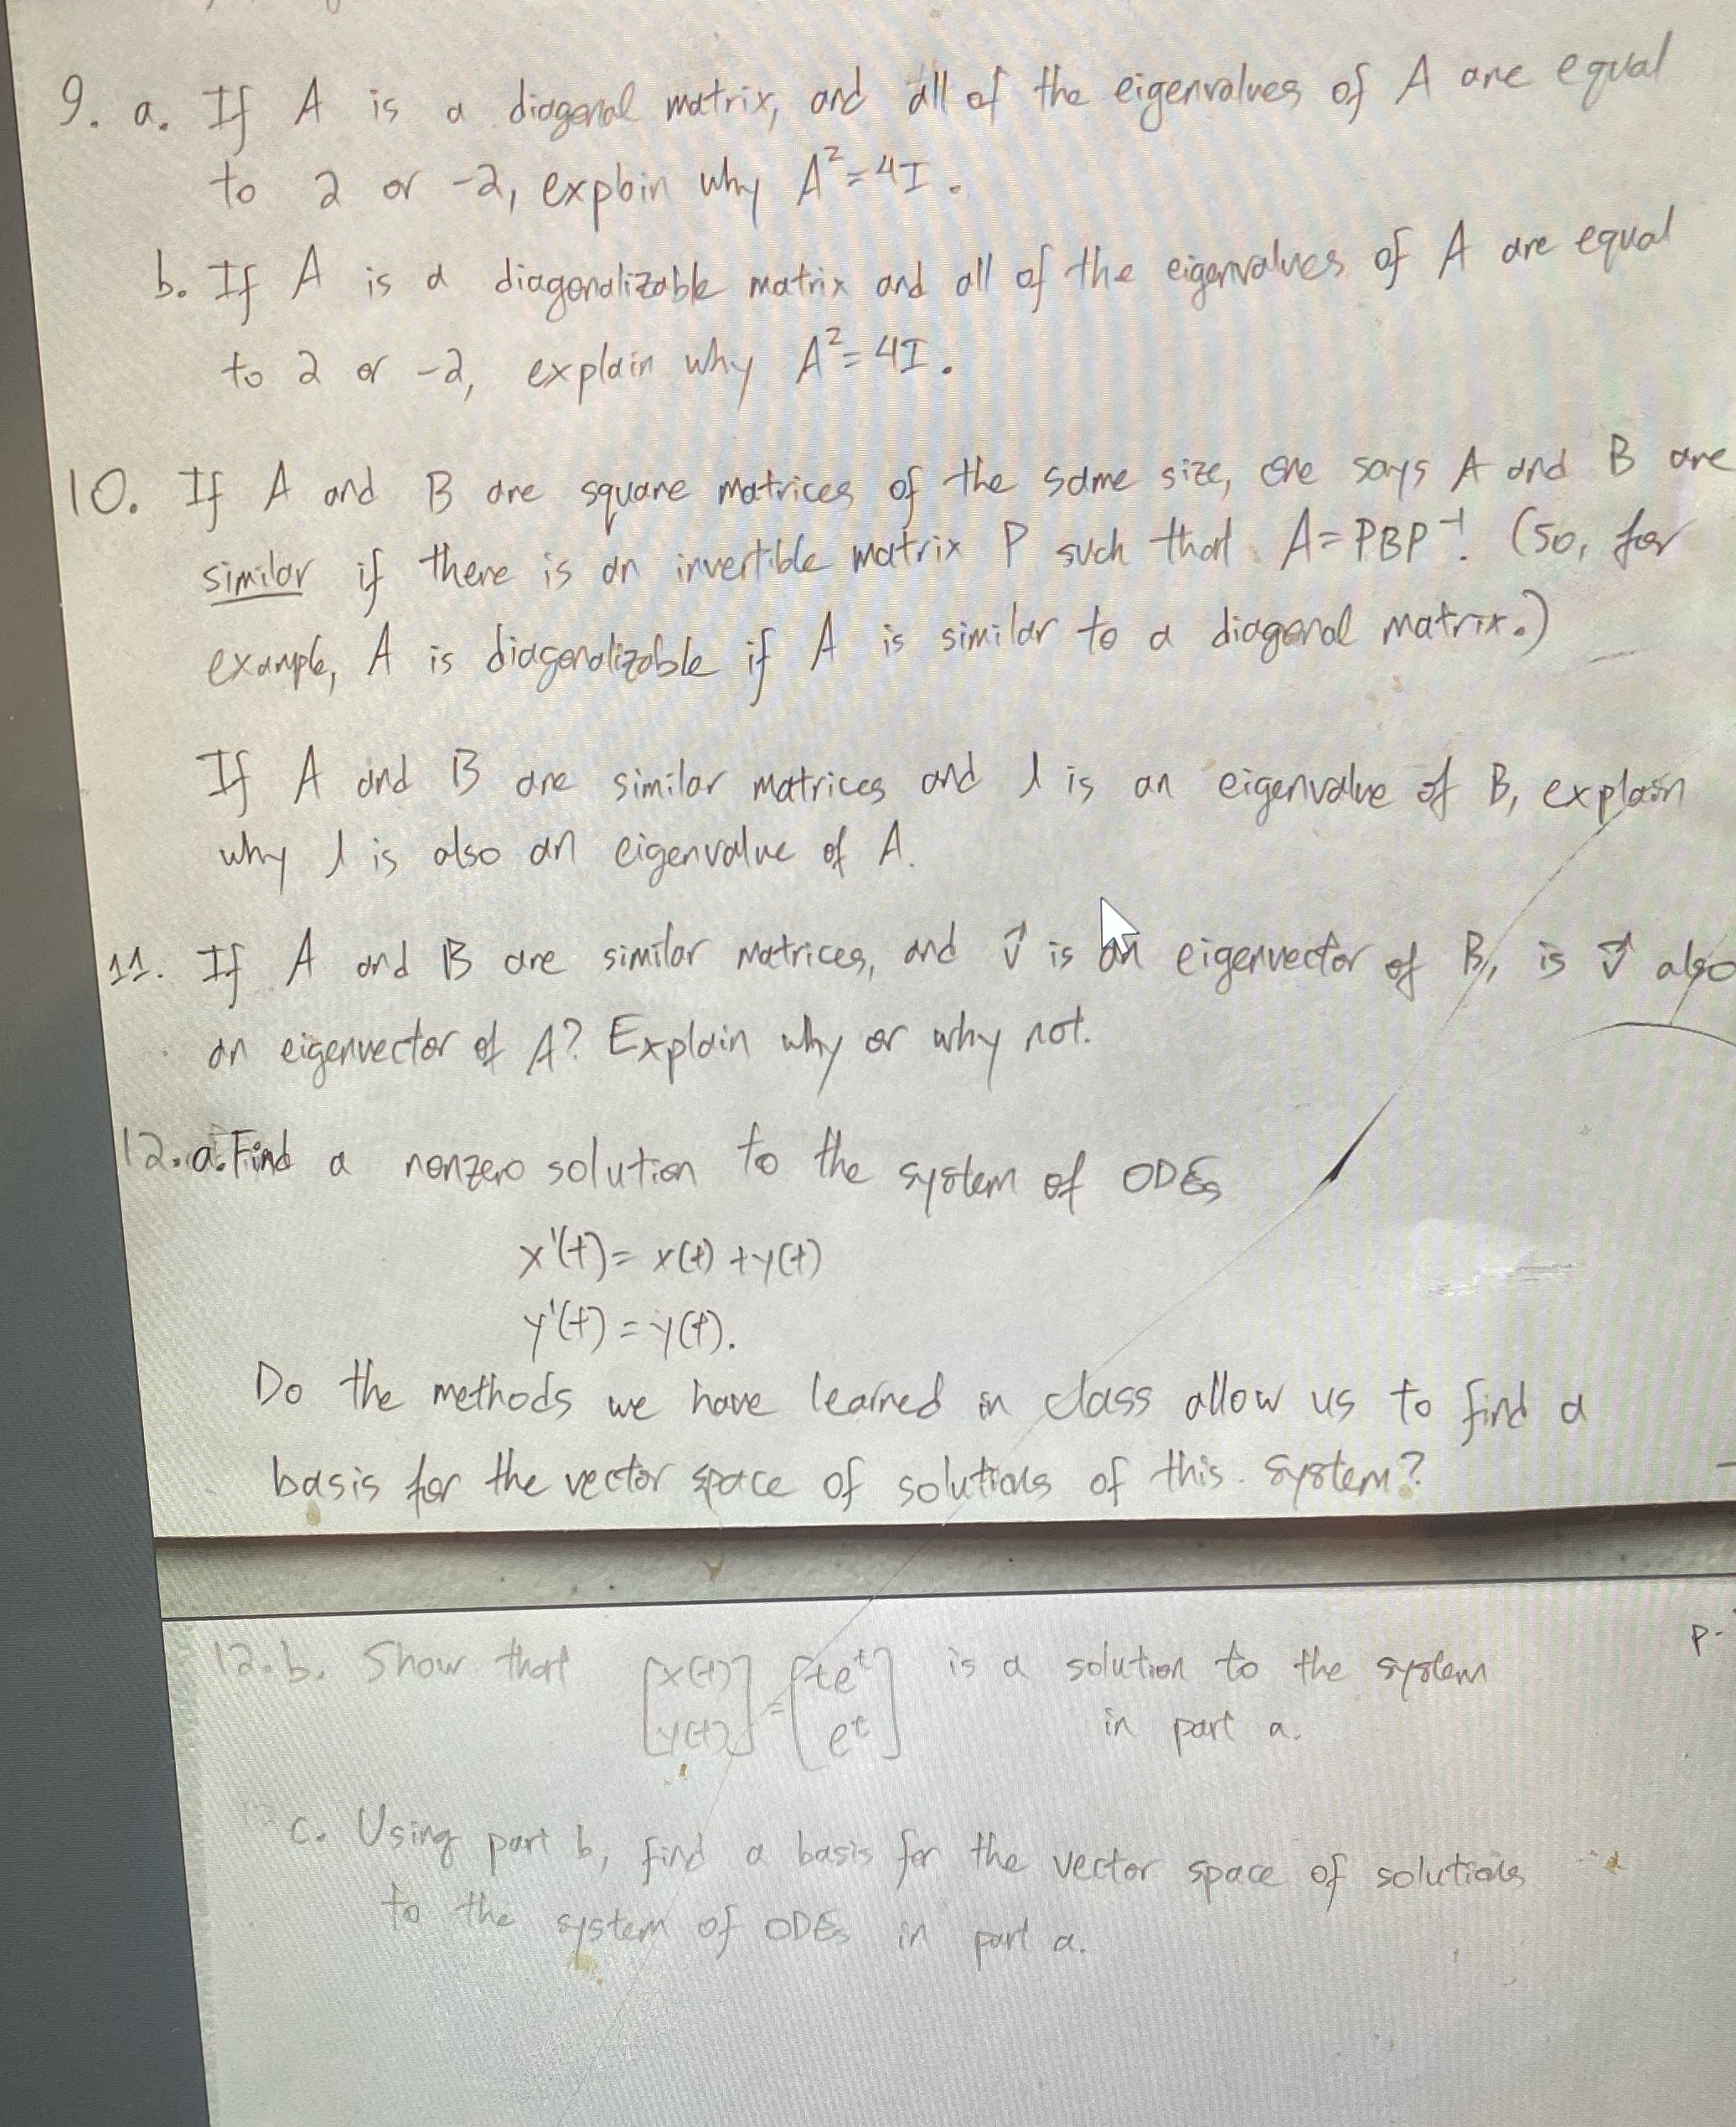 9. a. If A is a diagonal matrix, and all of the eigenvalues of A are equal
to 2 or -2, explain why A²=4I.
b. If A is a diagonalizable matrix and all of the eigenvalues of A are equal
to 2 or -2, explain why A²=4I.
10. If A and B are square matrices of the same size, one says A and B are
similar if there is an invertible matrix P such that A=PBP⁻¹. (So, for
example, A is diagonalizable if A is similar to a diagonal matrix.)
If A and B are similar matrices and λ is an eigenvalue of B, explain
why λ is also an eigenvalue of A.
11. If A and B are similar matrices, and v⃗ is an eigenvector of B, is v⃗ also
an eigenvector of A? Explain why or why not.
12. a. Find a nonzero solution to the system of ODEs
x'(t)= x(t) +y(t)
y'(t) = y(t).
Do the methods we have learned in class allow us to find a
basis for the vector space of solutions of this system?
p.
12.b. Show that [x(t) y(t)] = [te^t e^t] is a solution to the system
in part a.
c. Using part b, find a basis for the vector space of solutions
to the system of ODEs in part a.